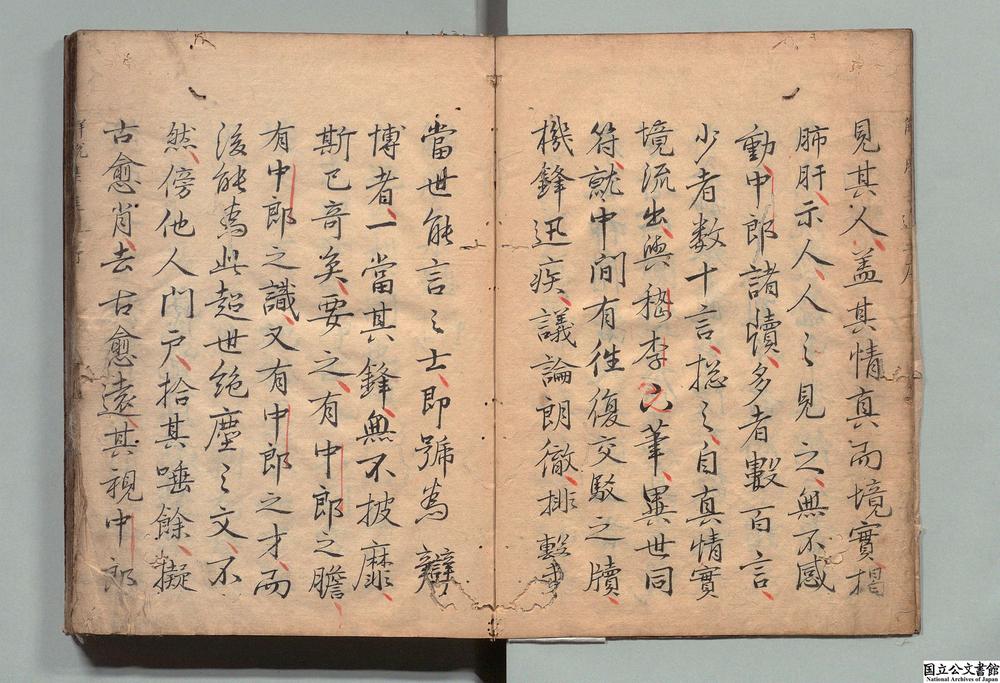 見其人、盖其情真而境實、揭
肺肝、示人、人〻見之、無不感
動、中郎諸牘、多者數百言、
少者数十言、揔之、自真情實
境流出、與嵆李下筆、異世同
符、就中間有徃復交駁之牘、
機鋒迅疾、議論朗徹、排擊
當世能言之士、即號為辯
博者、一當其鋒、無不披靡、
斯已奇矣、要之、有中郎之膽、
有中郎之識、又有中郎之才、而
後能為此超世絶塵之文、不
然、傍他人門戸、拾其唾餘、擬
古愈肖、去古愈遠、其視中郎
国立公文書館
National Archives of Japan